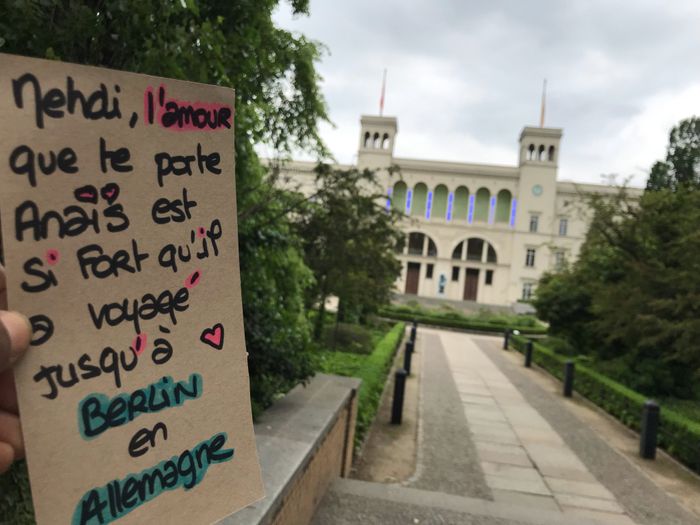 Mehdi, l'amour
que te porte
Anaïs est
si fort qu'il
a voyagé
jusqu'à
BERLIN
en
Allemagne